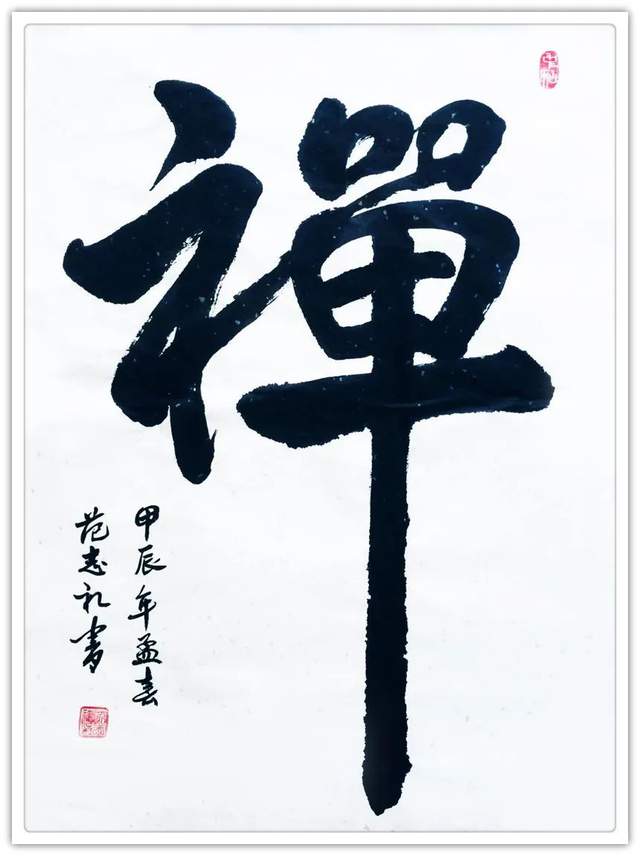 禪
甲辰年孟春
范志礼書